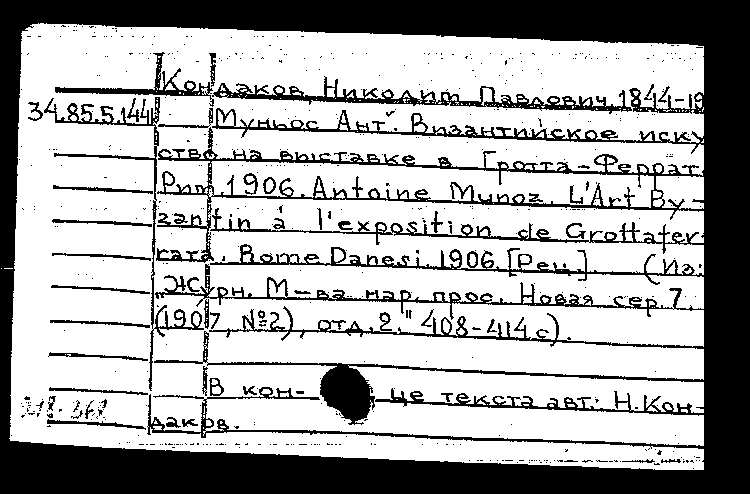 Кондаков, Никодим Павлович, 1844-19
34.85.5.144 Муньос Ант. Византийское иску
ство на выставке в Гротта-Феррат.
Рим, 1906. Antoine Munoz. L'Art By-
zantin à l'exposition de Grottafer-
rata. Rome Danesi 1906. [Рец.]. (Из:
„Журн. М-ва нар. прос. Новая сер. 7.
(1907, №2), отд. 2." 408-414 с).
В кон- це текста авт.: Н. Кон-
даков.